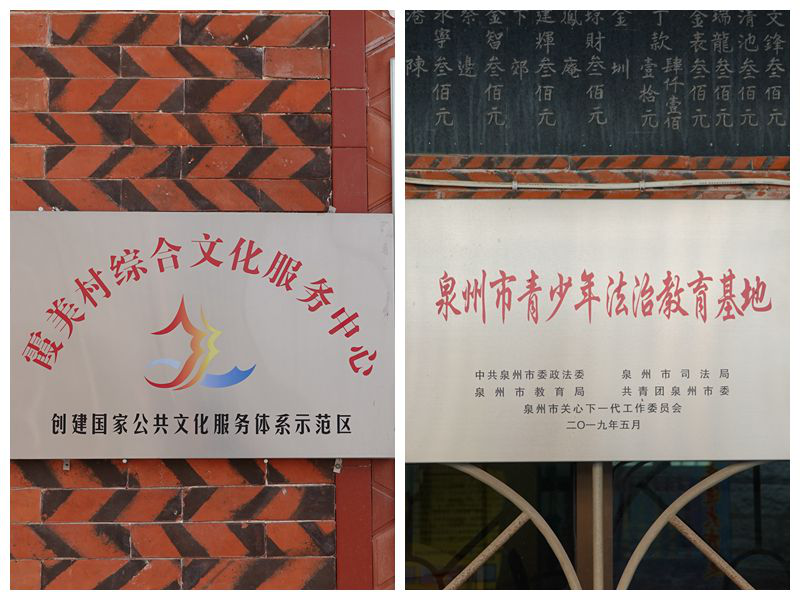 霞美村综合文化服务中心
创建国家公共文化服务体系示范区
文鋒叁佰元
清池叁佰元
瑞龍叁佰元
金表叁佰元
肆仟壹佰
丁款壹拾元
金圳
琼財叁佰元
鳳庵
建煇叁佰元
下郊
金智叁佰元
蔡邊
永寧叁佰元
港陳
泉州市青少年法治教育基地
中共泉州市委政法委 泉州市司法局
泉州市教育局 共青团泉州市委
泉州市关心下一代工作委员会
二〇一九年五月